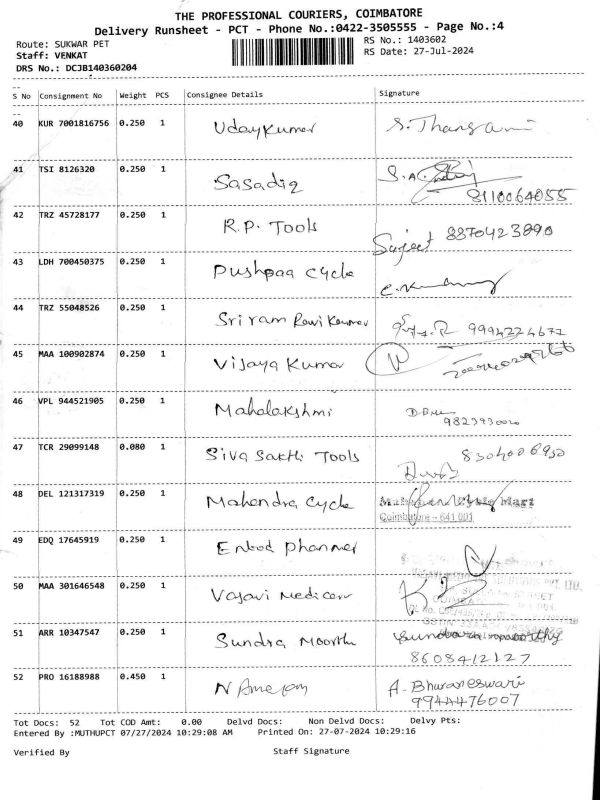 THE PROFESSIONAL COURIERS, COIMBATORE
Delivery Runsheet - PCT - Phone No.:0422-3505555 - Page No.:4
Route: SUKWAR PET
RS No.: 1403602
Staff: VENKAT
RS Date: 27-Jul-2024
DRS No.: DCJB140360204
S No Consignment No Weight PCS Consignee Details Signature
40 KUR 7001816756 0.250 1 Udaykumar S. Thangami
41 TSI 8126320 0.250 1 Sasadiq
8110064055
42 TRZ 45728177 0.250 1 R.P. Tools Sujeet 8870423890
43 LDH 700450375 0.250 1 Pushpaa Cycle
44 TRZ 55048526 0.250 1 Sri ram Ravi Kumar 9994224672
45 MAA 100902874 0.250 1 Vijaya Kumar
46 VPL 944521905 0.250 1 Mahalakshmi
47 TCR 29099148 0.080 1 Siva Sakthi Tools
48 DEL 121317319 0.250 1 Mahendra Cycle
Coimbatore - 641 001
49 EDQ 17645919 0.250 1
50 MAA 301646548 0.250 1
51 ARR 10347547 0.250 1 Sundra Moorthi
8608412127
52 PRO 16188988 0.450 1 A. Bhuvaneswari
9944476007
Tot Docs: 52 Tot COD Amt: 0.00 Delvd Docs: Non Delvd Docs: Delvy Pts:
Entered By :MUTHUPCT 07/27/2024 10:29:08 AM Printed On: 27-07-2024 10:29:16
Verified By Staff Signature